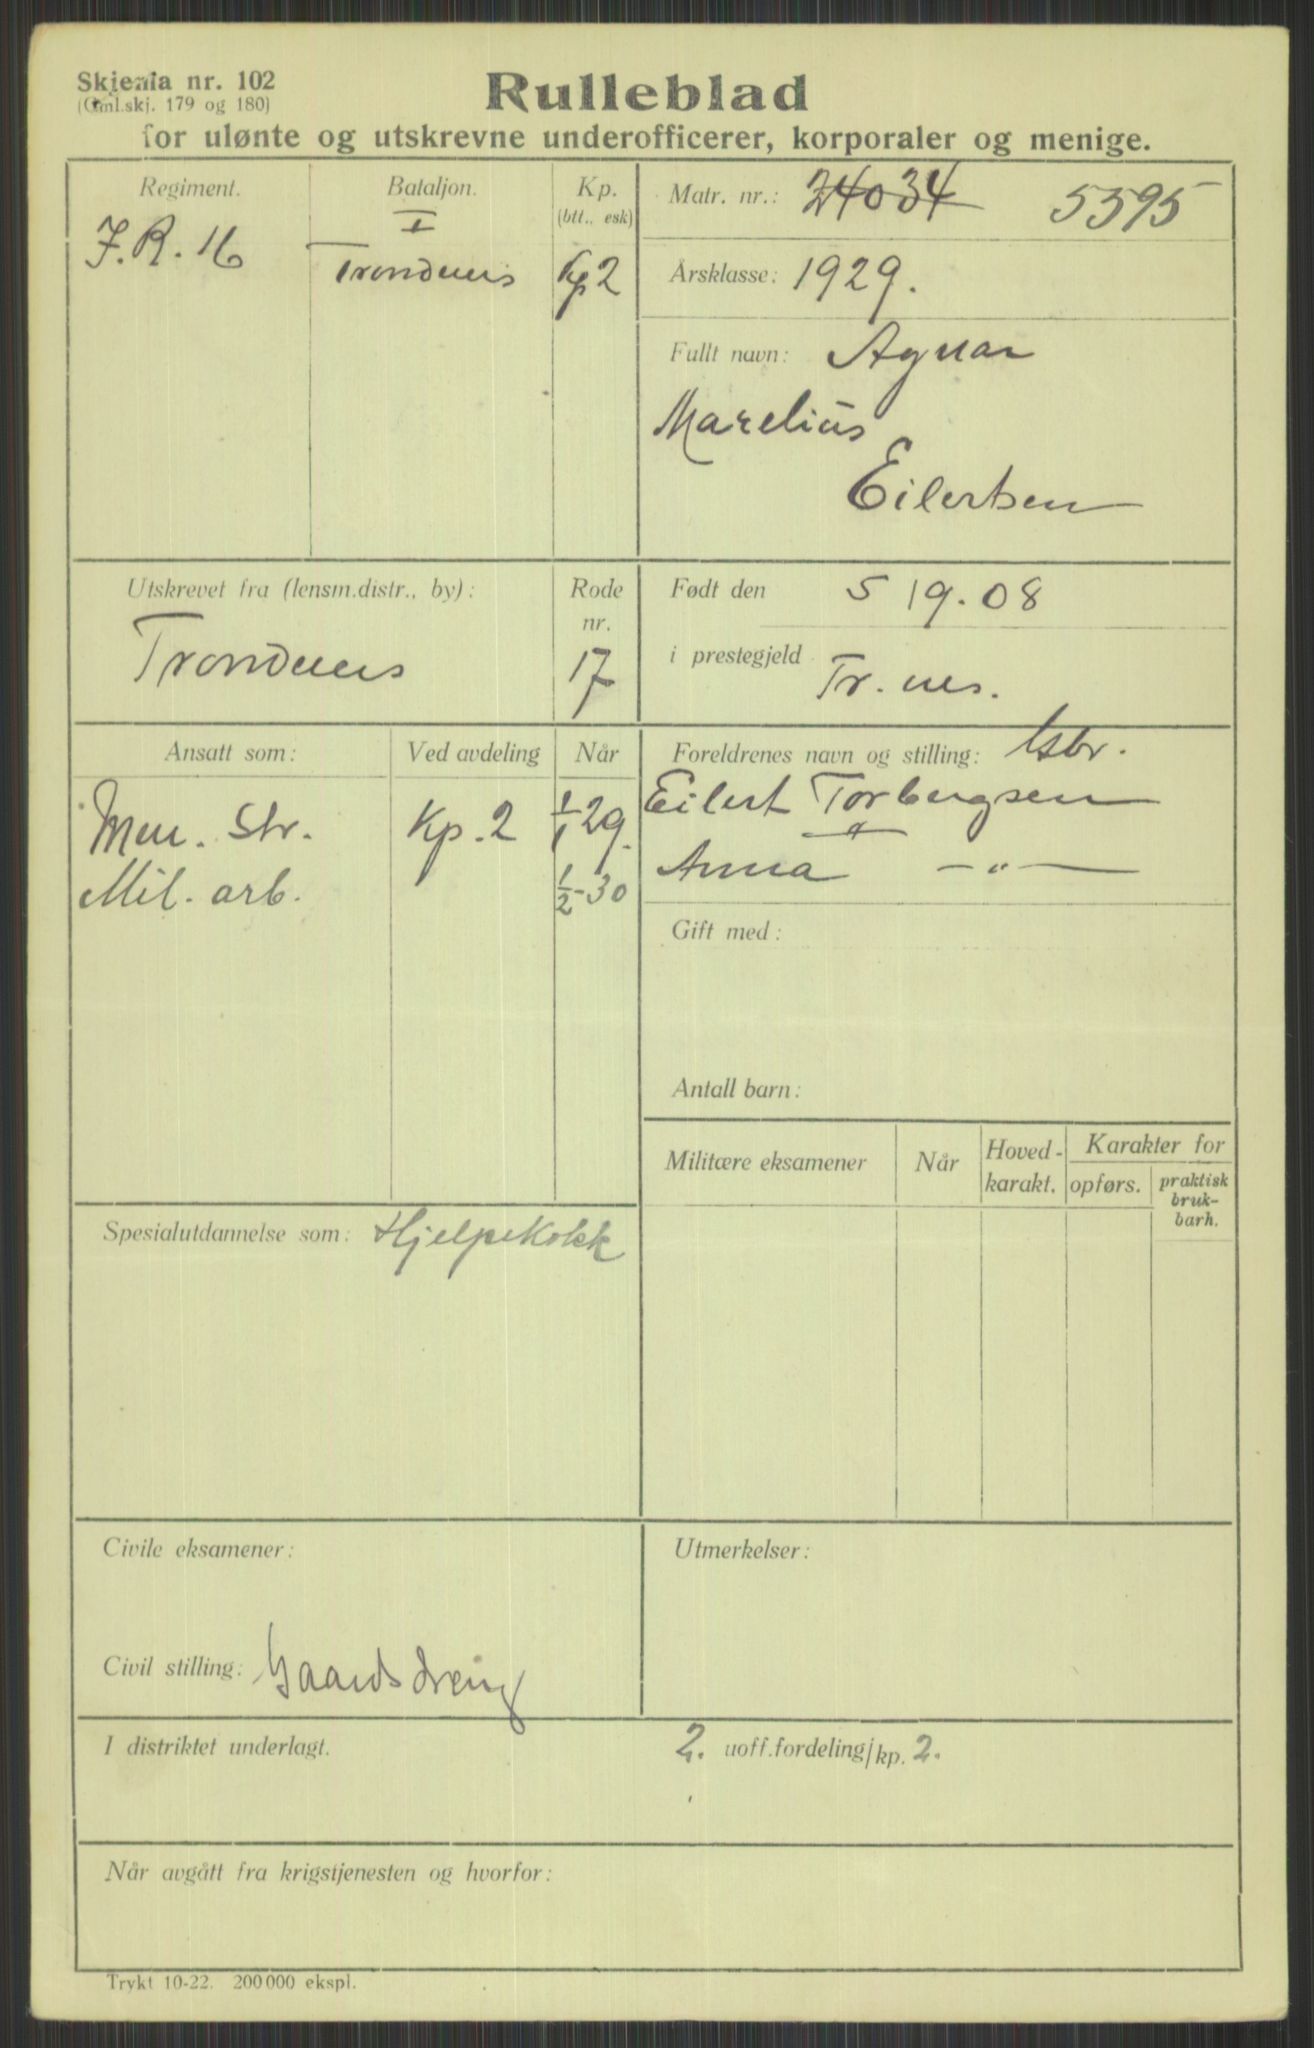 Skjema nr. 102
(Gml.skj. 179 og 180)
Rulleblad
for ulønte og utskrevne underofficerer, korporaler og menige.
Regiment.
J.R. 16
Bataljon.
I
Trondenes
Kp.
(btt., esk)
Kp 2
Matr. nr.: 24034 5395
Årsklasse: 1929.
Fullt navn: Agnar
Marelius
Eilertsen
Utskrevet fra (lensm.distr., by):
Trondenes
Rode
nr.
17
Født den 5 19.08
i prestegjeld Tr.nes.
Ansatt som:
Ved avdeling
Når
Men. Str. Kp. 2 1/1 29.
Mil. arb. 1/2-30
Foreldrenes navn og stilling: Gbr.
Eilert Torbergsen
Anna —„—
Gift med:
Antall barn:
Militære eksamener
Når
Hoved-
karakt.
Karakter for
opførs.
praktisk
bruk-
barh.
Spesialutdannelse som: Hjelpekokk
Civile eksamener:
Utmerkelser:
Civil stilling: Gaardsdreng
I distriktet underlagt. 2. uoff.fordeling/kp. 2.
Når avgått fra krigstjenesten og hvorfor:
Trykt 10-22. 200000 ekspl.